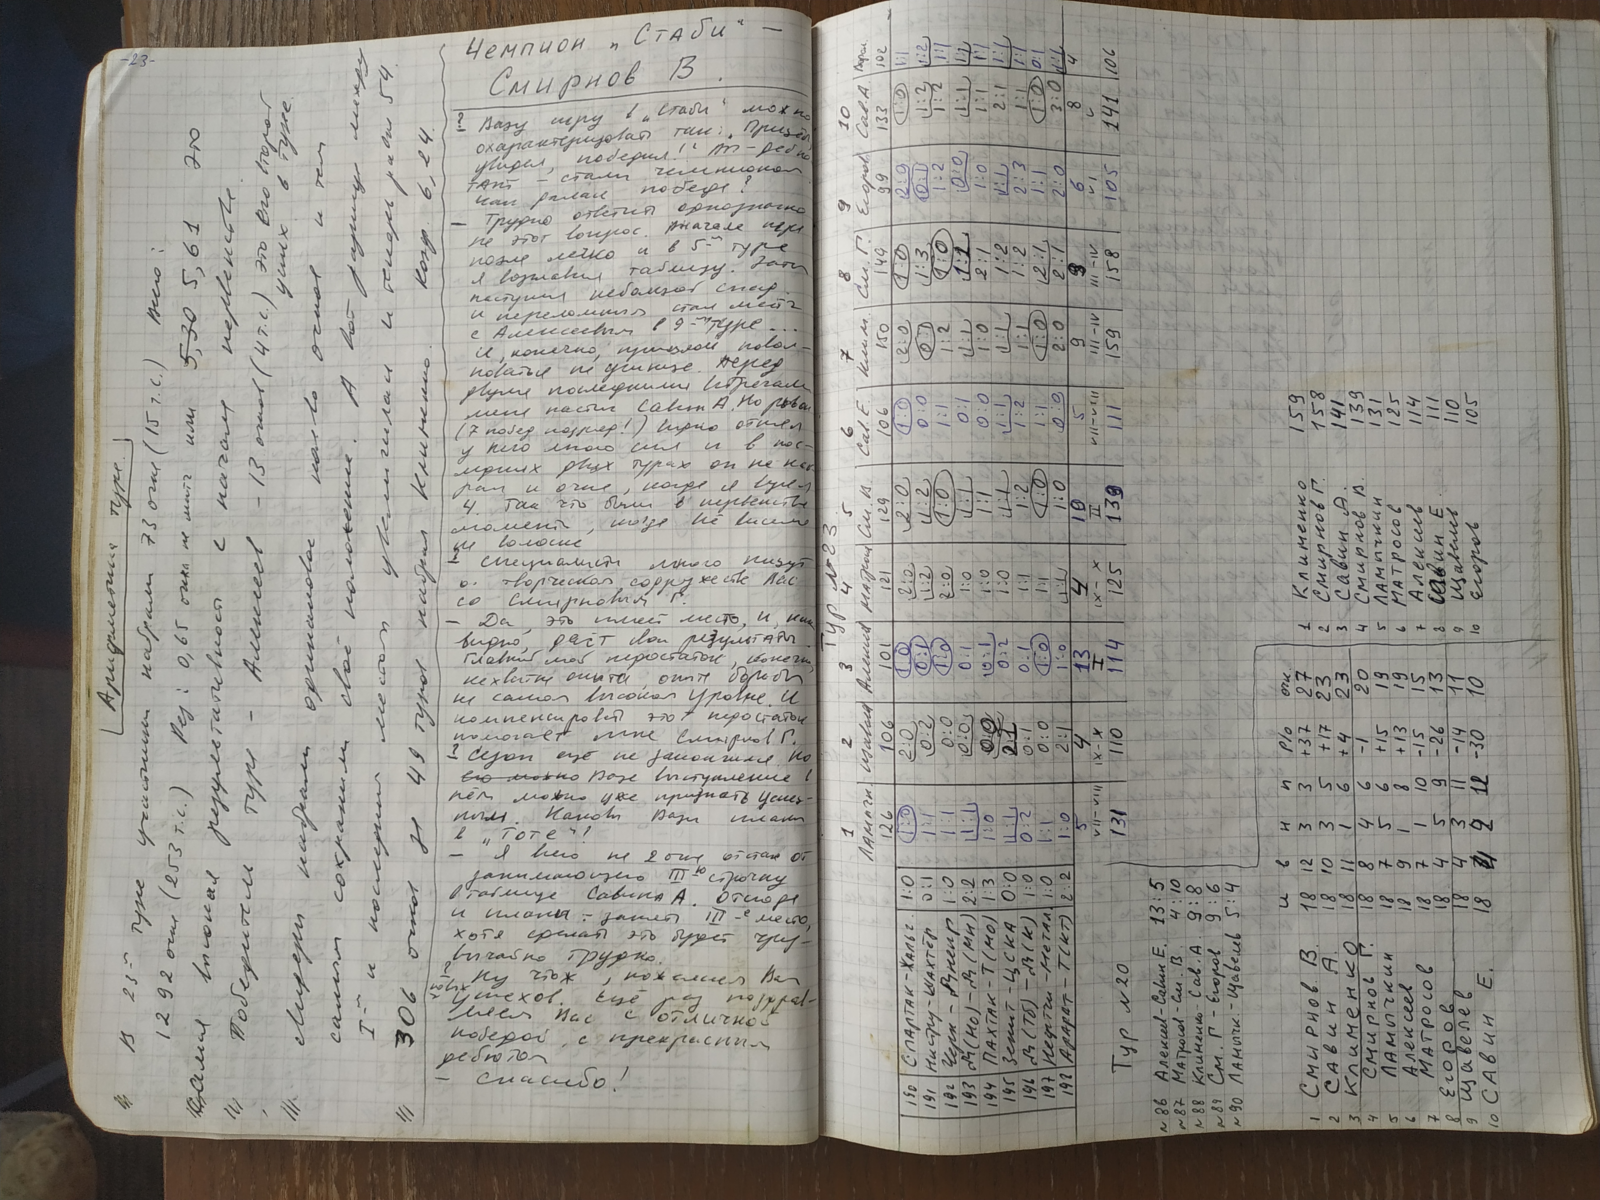 -23-
Арифметика тура
I) В 23м туре участники набрали 73 очка (15 т.с.) Всего:
1292 очка (253 т.с.) Рез: 0,65 очка за матч или 5,61 это
самая высокая результативность с начала первенства.
II) Победитель тура - Алексеев - 13 очков (4 т.с.) это его второй
успех в туре.
III) Лидеры набрали одинаковое кол-во очков и тем
самым сохранили своё положение. А вот разницу между
I м и последним местом увеличили и теперь равна 54.
306 очков за 49 туров набрал Клименко. Коэф. 6,24
Чемпион „Стаби" –
Смирнов В.
– Вашу игру в „Стаби" можно
охарактеризовать так: „Пришёл
увидел, победил!" Вы – дебю-
тант – стали чемпионом.
Как далась победа?
– Трудно ответить однозначно
на этот вопрос. Вначале игра
пошла легко и в 5м туре
я возглавил таблицу. Затем
наступил небольшой спад
и переломным стал матч
с Алексеевым в 9м туре...
И, конечно, пришлось повол-
новаться на финише. Перед
двумя последними встречами
меня настиг Савин А. Но рывок
(7 побед подряд!) видно отнял
у него много сил и в пос-
ледних двух турах он не наб-
рал и очка, когда я взял
4. Так что были в первенстве
моменты, когда всё висело
на волоске
– Специалисты много пишут
о творческом содружестве Вас
со Смирновым Г.
– Да, это имеет место, и, как
видно, даёт свои результаты.
Главный мой недостаток, конечно,
нехватка опыта, опыта борьбы
на самом высоком уровне. И
компенсировать этот недостаток
помогает мне Смирнов Г.
– Сезон ещё не закончился но
Ваше выступление в
нём можно уже признать успеш-
ным. Каковы Ваши планы
в „Тоте"?
– Я всего на 2 очка отстал от
занимающего IIIю строчку
в таблице Савина А. Отсюда
и планы – занять IIIе место,
хотя сделать это будет чрез-
вычайно трудно.
– Ну что ж, пожелаем Вам
успехов. Ещё раз поздрав-
ляем Вас с отличной
победой, с прекрасным
дебютом
– Спасибо!
Тур №23
1 2 3 4 5 6 7 8 9 10
Ламычк Щавель Алексеев Матрос См. В. Сав. Е. Клим. См. Г. Егоров Сав. А.
126 106 101 121 129 106 150 149 99 133 102
190 Спартак-Хальс 1:0 1:0 2:0 1:0 2:0 2:0 1:0 2:0 1:0 2:0 1:0 1:1
191 Нистру-Шахтёр 0:1 1:1 0:2 0:1 1:2 1:2 0:0 0:1 1:3 0:1 1:2 1:2
192 Черн-Днепр 1:0 1:1 0:0 1:0 2:0 1:0 1:1 1:2 1:0 1:2 1:2 1:1
193 Д(Мо)-Д(Ми) 2:2 1:1 0:0 0:1 1:0 1:1 0:1 1:1 1:1 0:0 1:1 1:1
194 Пахтак-Т(Мо) 1:3 1:0 0:0 0:1 1:0 1:1 0:0 1:0 2:1 1:0 1:1 1:1
195 Зенит-ЦСКА 0:0 1:1 2:1 0:2 1:0 1:1 1:1 1:1 1:2 1:1 2:1 1:1
196 Д(Тб)-Д(К) 1:0 0:2 0:1 0:1 1:1 1:2 1:2 1:1 1:2 2:3 1:1 1:1
197 Нефтчи-Метал. 1:0 1:1 0:0 1:0 1:1 1:0 1:1 1:0 2:1 1:1 1:0 0:1
198 Арарат-Т(КТ) 2:2 1:0 2:1 1:0 1:1 1:0 0:0 2:0 2:1 2:0 3:0 1:1
5 4 13 4 10 5 9 9 6 8 4
VII-VIII IX-X I IX-X II VII-VIII III-IV III-IV VI V
131 110 114 125 139 111 159 158 105 141 106
Тур №20
№86 Алексеев-Савин Е. 13:5
№87 Матросов-См. В 4:10
№88 Клименко-Сав. А. 9:8
№89 См. Г-Егоров 9:6
№90 Ламычк.-Щавель 5:4
и в н п р/о очк.
1 Смирнов В 18 12 3 3 +37 27
2 Савин А. 18 10 3 5 +17 23
3 Клименко 18 11 1 6 +4 23
4 Смирнов Г. 18 8 4 6 -1 20
5 Ламычкин 18 7 5 6 +15 19
6 Алексеев 18 9 1 8 +13 19
7 Матросов 18 7 1 10 -15 15
8 Егоров 18 4 5 9 -26 13
9 Щавелев 18 4 3 11 -14 11
10 Савин Е. 18 4 2 12 -30 10
1 Клименко 159
2 Смирнов Г. 158
3 Савин А. 141
4 Смирнов В. 139
5 Ламычкин 131
6 Матросов 125
7 Алексеев 114
8 Савин Е. 111
9 Щавелев 110
10 Егоров 105